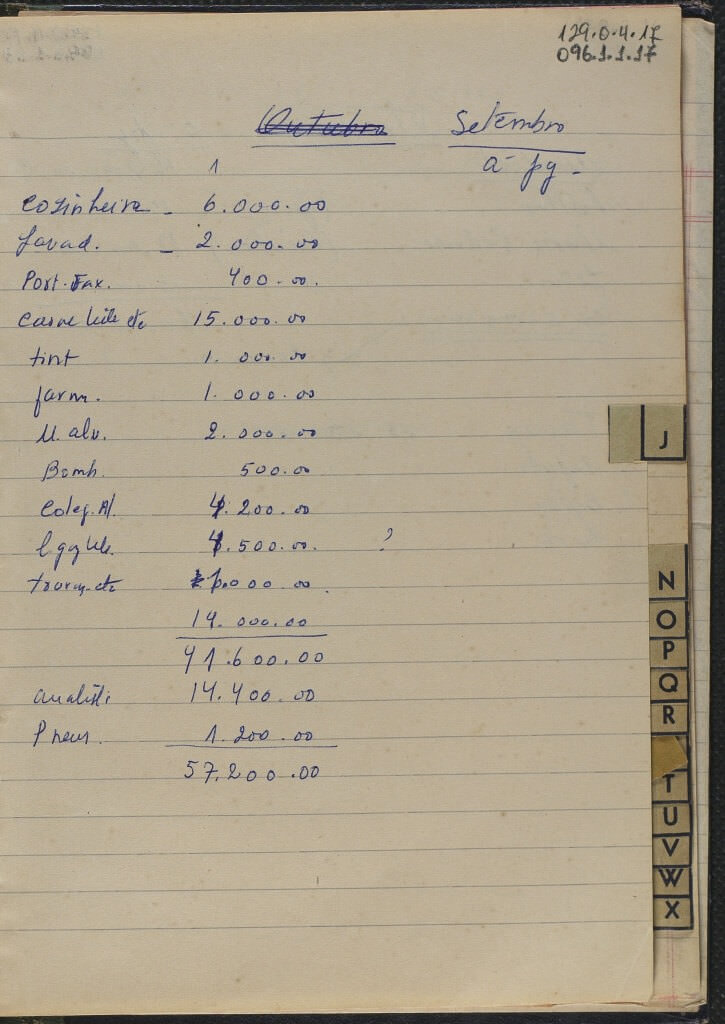 129.0.4.17
096.1.1.17
Outubro Setembro
a pg -
1
cozinheira - 6.000.00
lavad. - 2.000.00
Port. Fax. 400.00.
carne leite etc 15.000.00
tint 1.000.00
farm. 1.000.00
M. alv. 2.000.00
Bomb. 500.00
Coleg. Al. 4.200.00
4.500.00. ?
1.000.00.
14.000.00
41.600.00
analist. 14.400.00
Pneus. 1.200.00
57.200.00
J
N
O
P
Q
R
T
U
V
W
X